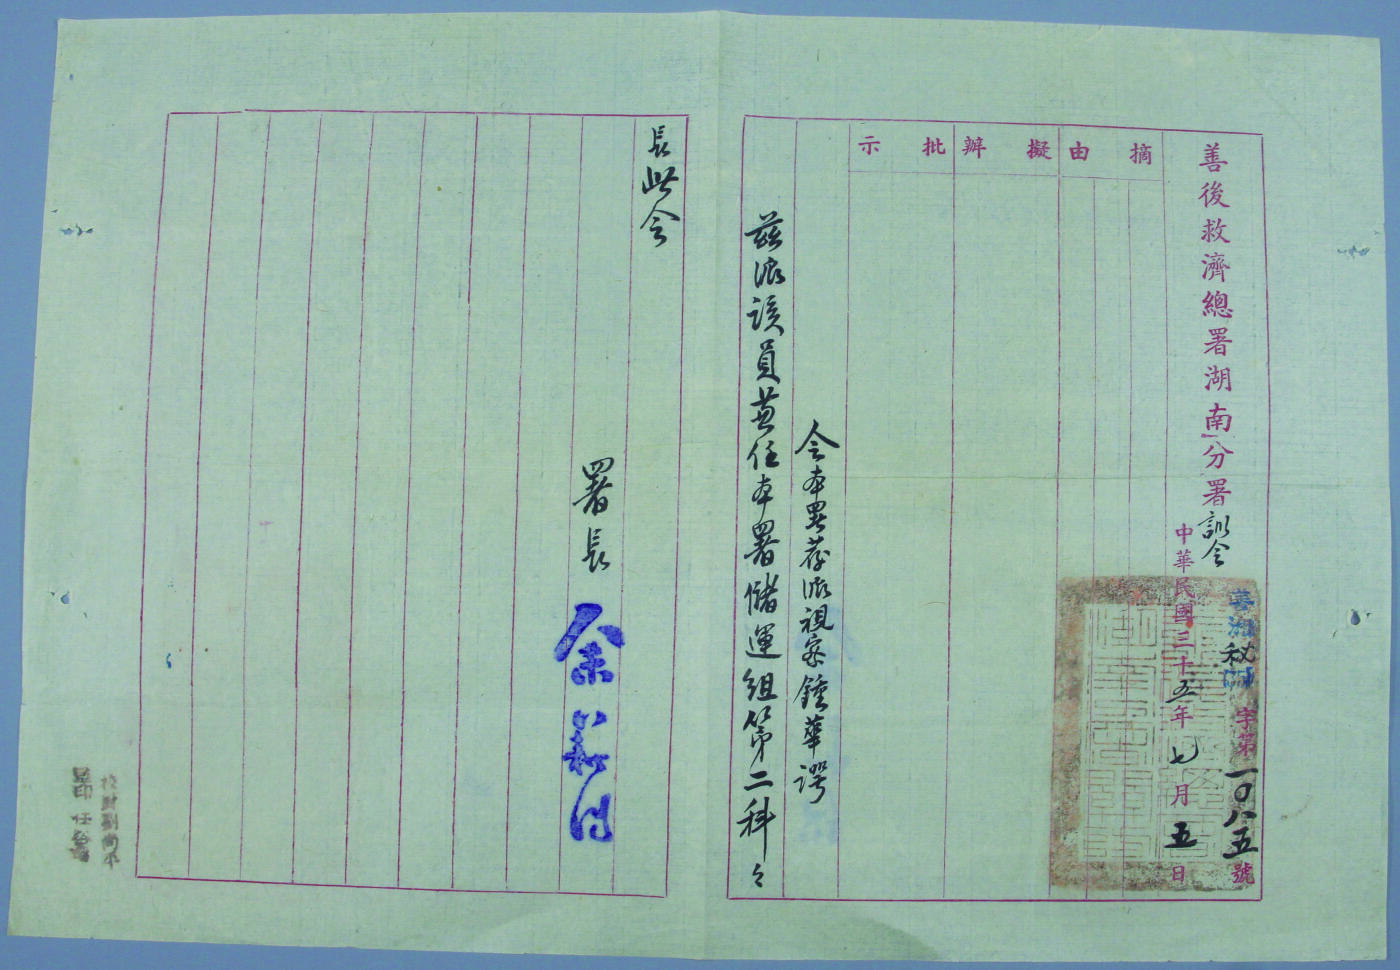 善後救濟總署湖南分署訓令
善湘秘 字第一〇八五號
中華民國三十五年七月五日
摘由
擬辦
批示
令本署荐派視察鍾華諤
茲派該員兼任本署儲運組第二科々
長此令
署長余籍傳
校對劉尚平
監印任